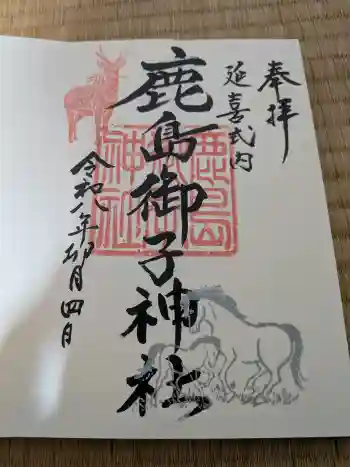 奉拝
延喜式内
鹿島御子神社
鹿島
御子
神社
令和八年卯月四日